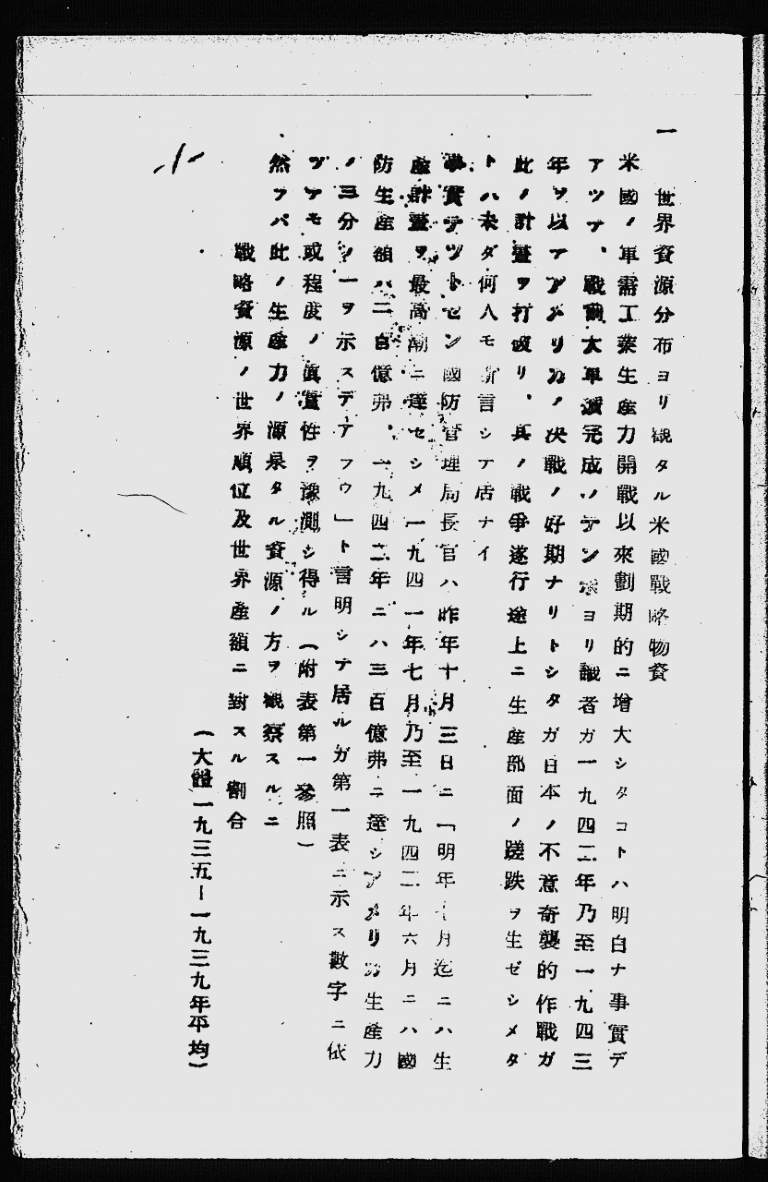 一　世界資源分布ヨリ觀タル米國戰略物資
米國ノ軍需工業生產力開戰以來劃期的ニ增大シタコトハ明白ナ事實デ
アツテ、戰前大軍擴完成ノテンポヨリ識者ガ一九四二年乃至一九四三
年ヲ以テアメリカノ決戰ノ好期ナリトシタガ日本ノ不意奇襲的作戰ガ
此ノ計畫ヲ打破リ、其ノ戰爭遂行途上ニ生產部面ノ蹉跌ヲ生ゼシメタ
トハ未ダ何人モ斷言シテ居ナイ
事實テツトセン國防管理局長官ハ昨年十月三日ニ「明年十月迄ニハ生
產計畫ヲ最高潮ニ達セシメ一九四一年七月乃至一九四二年六月ニハ國
防生產額ハ二百億弗、一九四二年ニハ三百億弗ニ達シアメリカ生產力
ノ三分ノ一ヲ示スデアラウ」ト言明シテ居ルガ第一表ニ示ス數字ニ依
ツテモ或程度ノ眞實性ヲ豫測シ得ル（附表第一參照）
然ラバ此ノ生產力ノ源泉タル資源ノ方ヲ觀察スルニ
戰略資源ノ世界順位及世界產額ニ對スル割合
（大體一九三五－一九三九年平均）